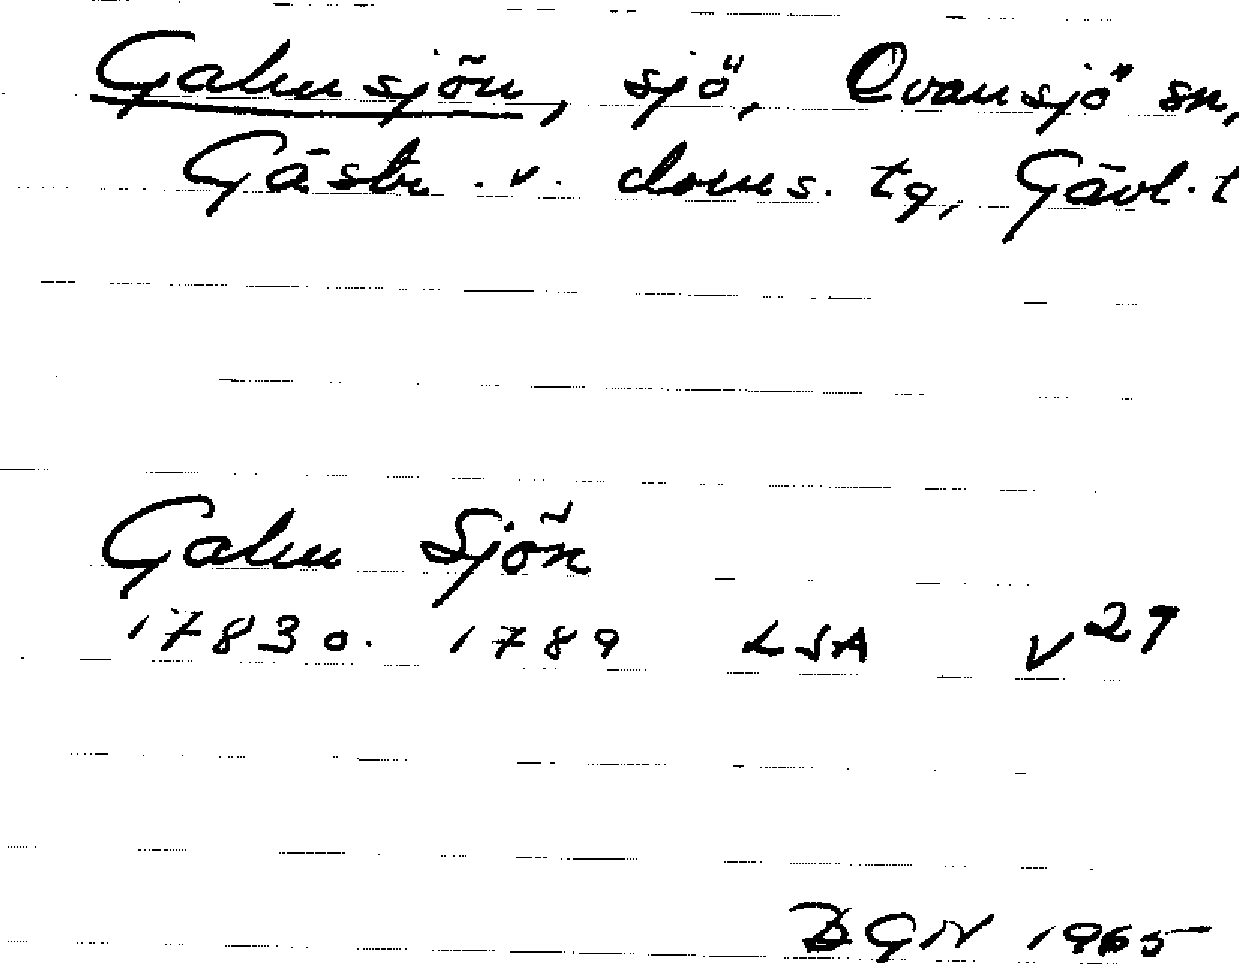 Galmsjön, sjö, Ovansjö sn,
Gästr. v. doms. tg, Gävl. l
Galm Sjön
1783 o. 1789 LSA V 27
DGN 1965